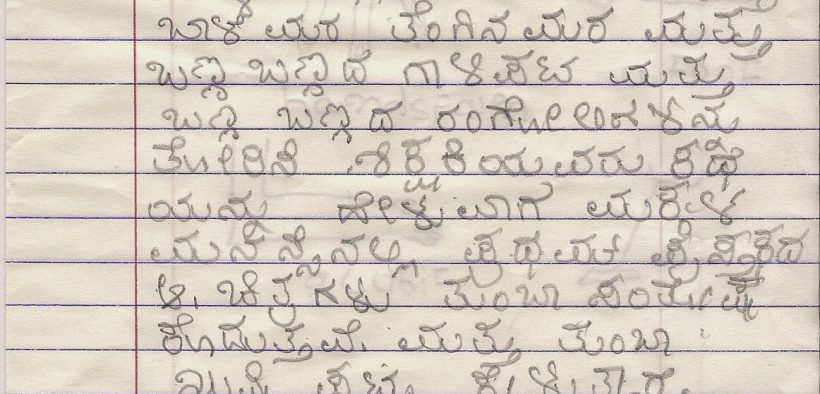 ಬಾಳೆಮರ ತೆಂಗಿನಮರ ಮತ್ತು
ಬಣ್ಣ ಬಣ್ಣದ ಗಾಳಿಪಟ ಮತ್ತು
ಬಣ್ಣ ಬಣ್ಣದ ರಂಗೋಲಿಗಳನ್ನು
ತೋರಿಸಿ ಶಿಕ್ಷಕಿಯವರು ಕಥೆ
ಯನ್ನು ಹೇಳುವಾಗ ಮಕ್ಕಳ
ಮನಸ್ಸಿನಲ್ಲಿ ಪ್ರಥಮ ಪುಸ್ತಕದ
ಆ ಚಿತ್ರಗಳು ತುಂಬಾ ಸಂತೋಷ
ಕೊಡುತ್ತವೆ. ಮತ್ತು ತುಂಬಾ